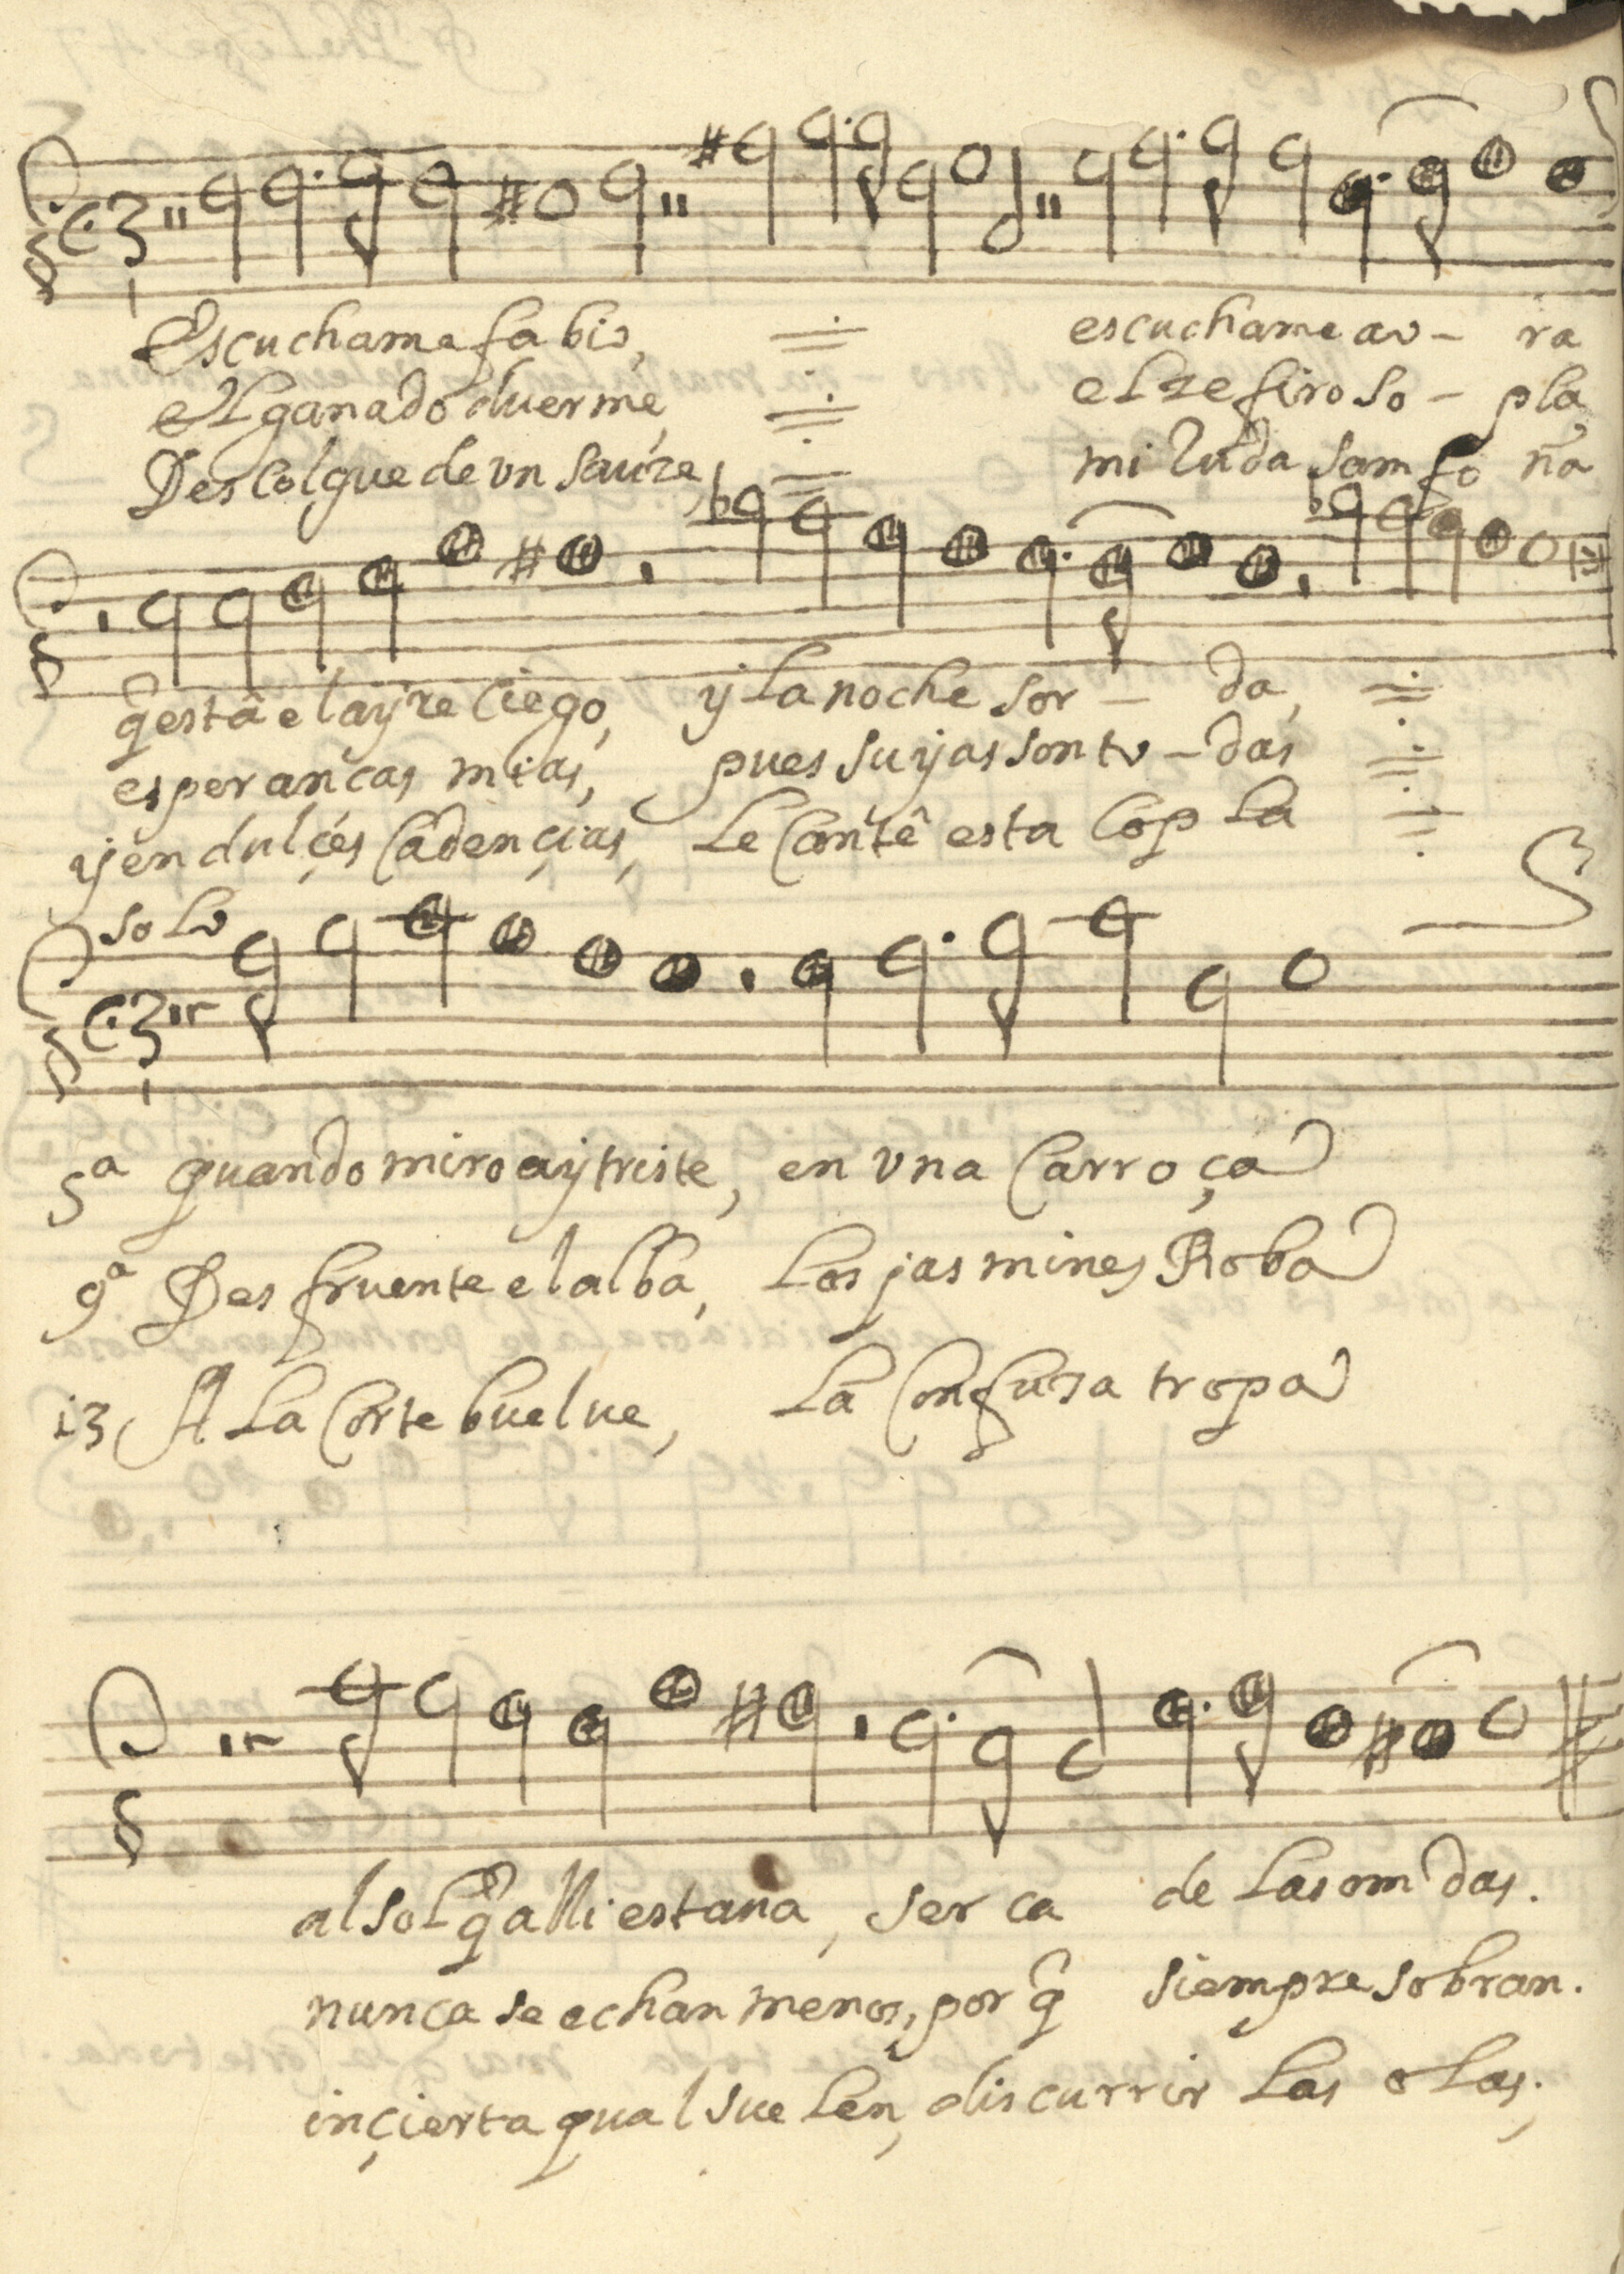 Escuchame fabio, escuchame ao - ra
el ganado duerme, el zefiro so - pla
Descolgue de vn sauze, mi ruda samfoña
q̃ està el ayre ciego, y la noche sor - da,
esperanças mias, pues suyas son to - das
y en dulçes cadençias, le cantê esta copla
solo
5ª quando miro ay triste, en vna carroça
9ª Des fruente el alba, los jasmines Roba
13 A la corte buelue, la confuza tropa
al sol q̃ alli estaua, serca de las omdas.
nunca se echan menos, por q̃ siempre sobran.
inçierta qual suelen, discurrir las olas.